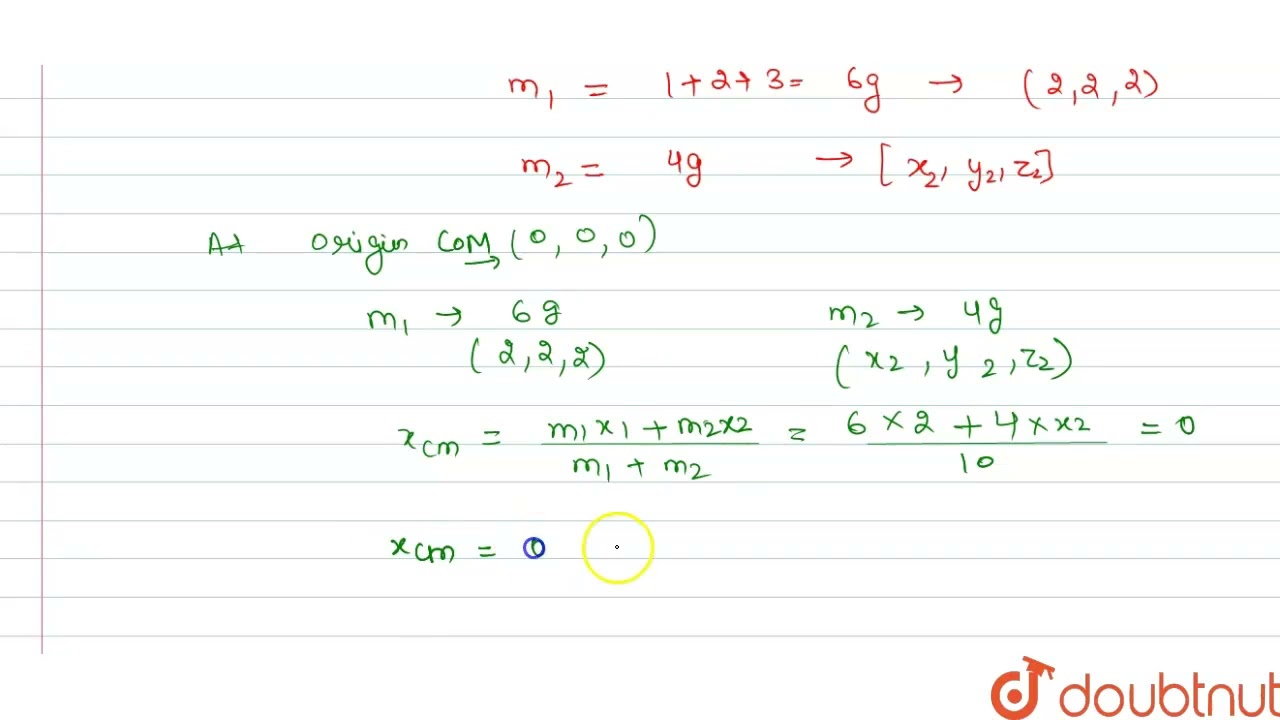 m₁ = 1+2+3= 6g → (2,2,2)
m₂ = 4g → [x₂, y₂, z₂]
At origin COM (0,0,0)
m₁ → 6g m₂ → 4g
(2,2,2) (x₂, y₂, z₂)
xcm = m₁x₁ + m₂x₂ / m₁ + m₂ = 6×2+4×x₂ / 10 = 0
xcm = 0
doubtnut